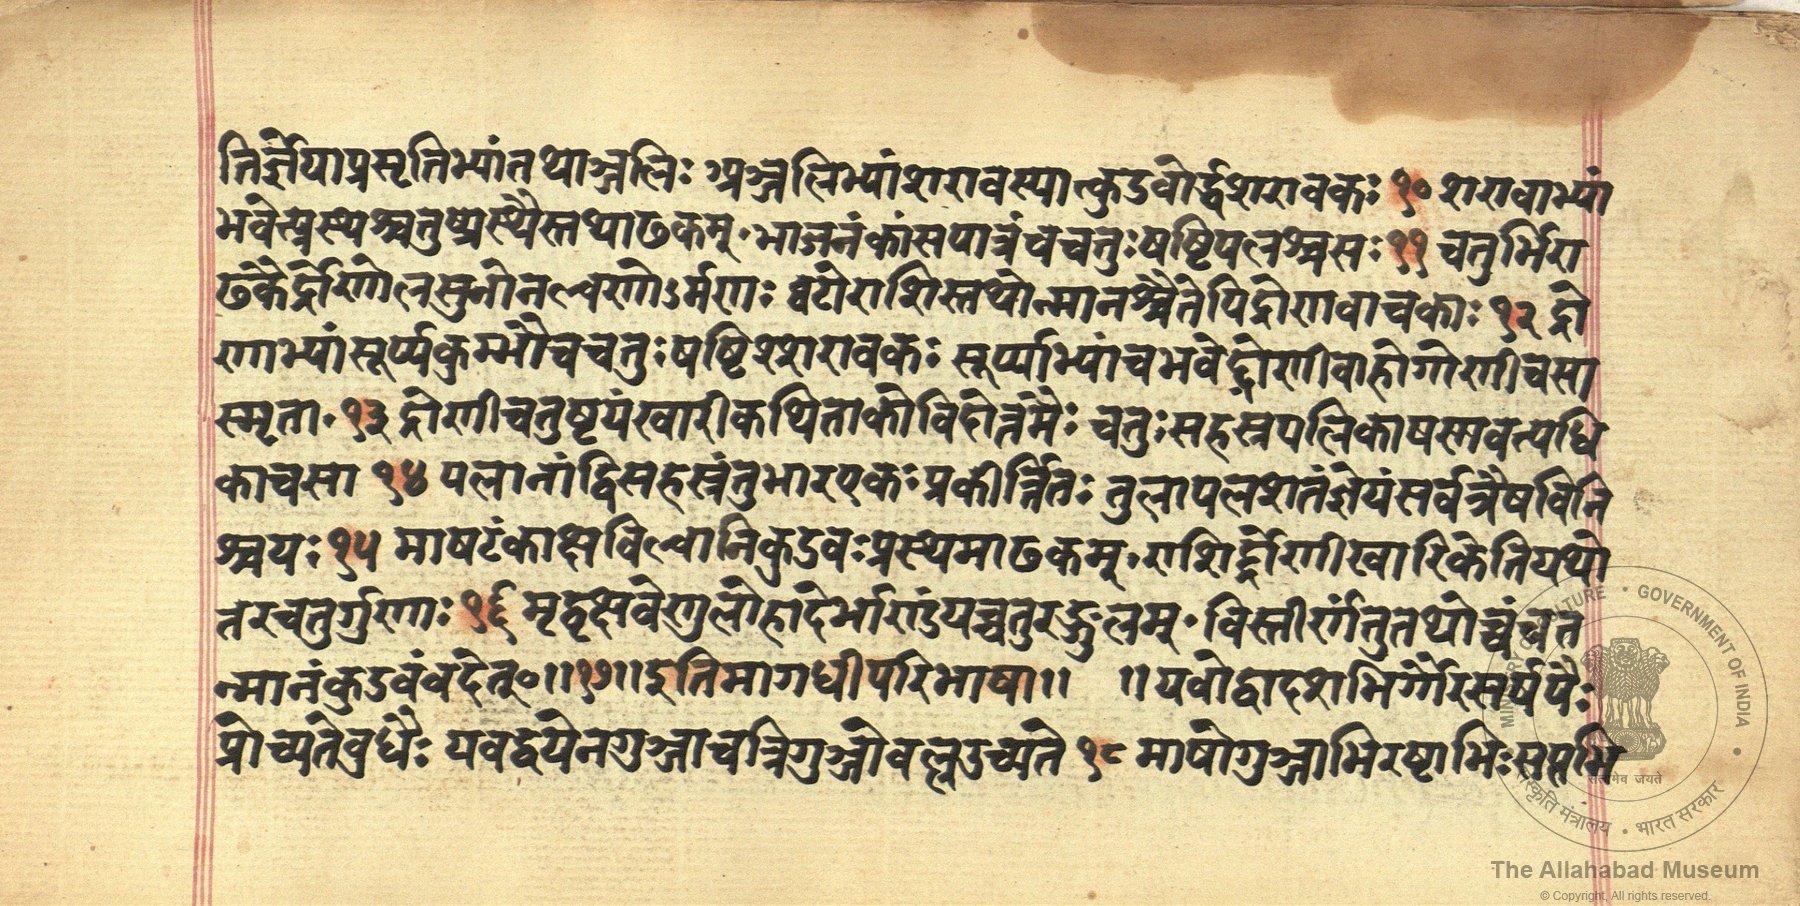 तिर्ज्ञेयाप्रसृतिभ्यांतथाञ्जलिः अञ्जलिभ्यांशरावस्यात्कुडवोर्द्धशरावकः १० शरावाभ्यां
भवेत्प्रस्थश्चतुष्प्रस्थैस्तथाढकम्॰भाजनंकांसपात्रंचचतुःषष्टिपलश्चसः ११ चतुर्भिरा
ढकैर्द्रोणोलसुनोनल्वणोऽर्मणः घटोराशिस्तथोन्मानश्चैतेपिद्रोणवाचकाः १२ द्रो
णाभ्यांसूर्प्पकुम्भौचचतुःषष्टिश्शरावकः सूर्प्पाभ्यांचभवेद्द्रोणीवाहोगोणीचसा
स्मृता॰१३ द्रोणीचतुष्टयंखारीकथिताकोविदोत्तमैः चतुःसहस्रपलिकाषस्मवत्यधि
काचसा १४ पलानांद्विसहस्रंतुभारएकःप्रकीर्त्तितः तुलापलशतंज्ञेयंसर्वत्रैषविनि
श्चयः १५ माषटंकाक्षविल्वानिकुडवःप्रस्थमाढकम्॰राशिर्द्रोणीखारिकेतियथो
तरचतुर्गुणाः १६ मृद्वृक्षवेणुलोहादेर्भाण्डंयच्चतुरङ्गुलम्॰विस्तीर्णंतुतथोच्चंचत
न्मानंकुडवंवदेत्॰॥१७॥इतिमागधीपरिभाषा॥ ॥यवोद्वादशभिर्ग्गौरसर्षपैः
प्रोच्यतेबुधैः यवद्वयेनगुञ्जाचत्रिगुञ्जोवल्लउच्यते १८ माषोगुञ्जाभिरष्टाभिःसप्तभि
MINISTRY OF CULTURE • GOVERNMENT OF INDIA
सत्यमेव जयते
संस्कृति मंत्रालय • भारत सरकार
The Allahabad Museum
© Copyright, All rights reserved.